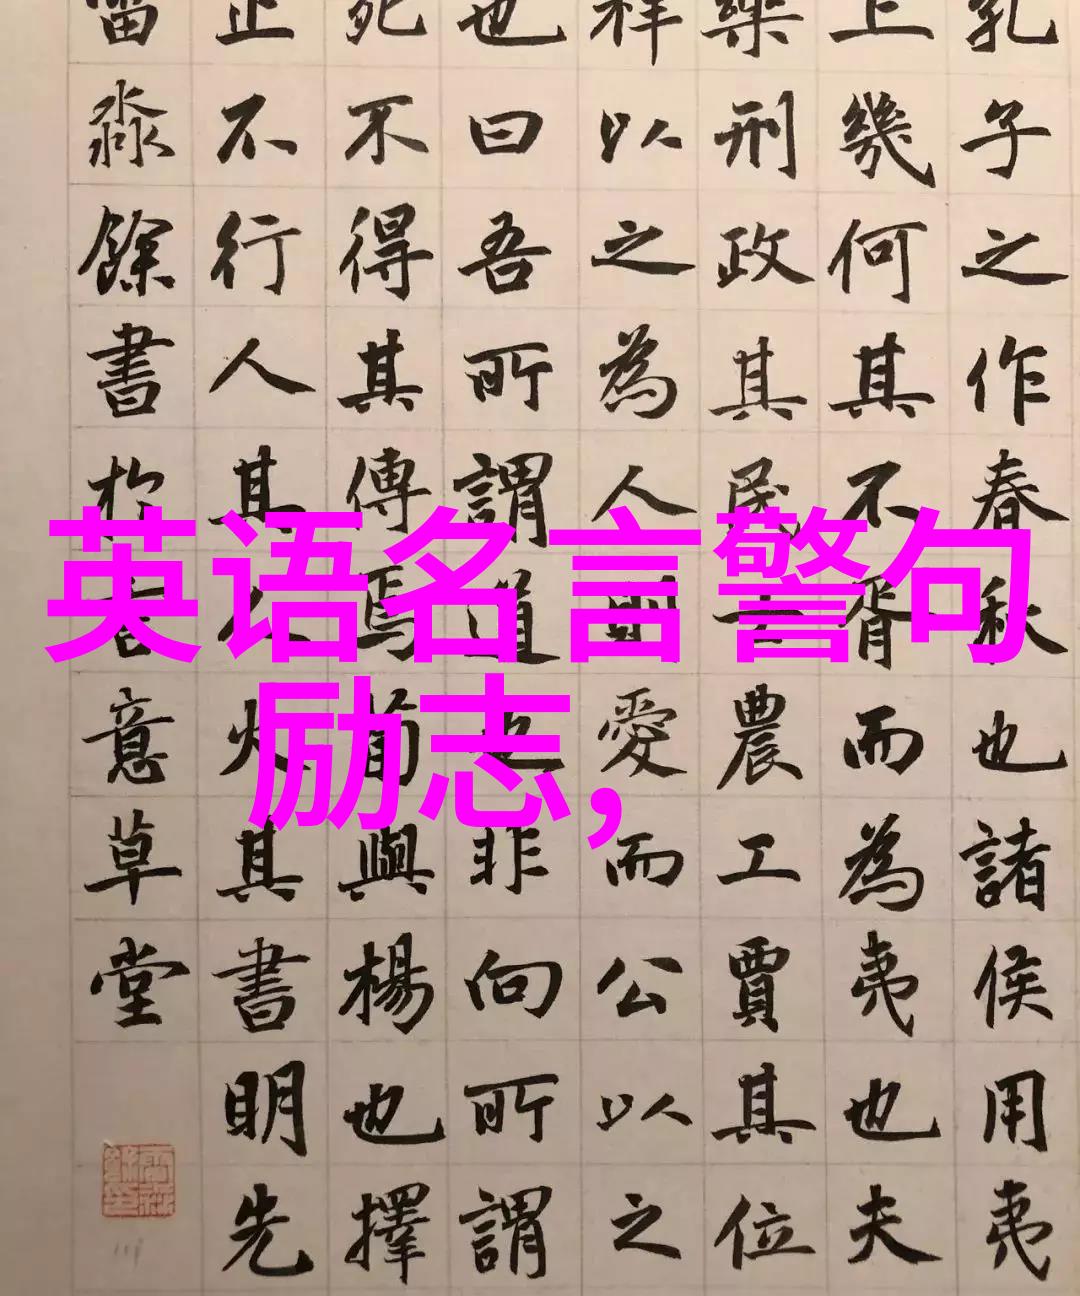 英语名言警句
励志,
孔子之作春秋也諸侯用夷
上幾何其不胥而為夷也夫
樂刑政其民士農工賈其位
祥以之為人則愛而公以之
也曰吾所謂道也非向所謂
死不得其傳焉荀與楊也擇
止不行人其人火其書明先
淼餘書於意草堂